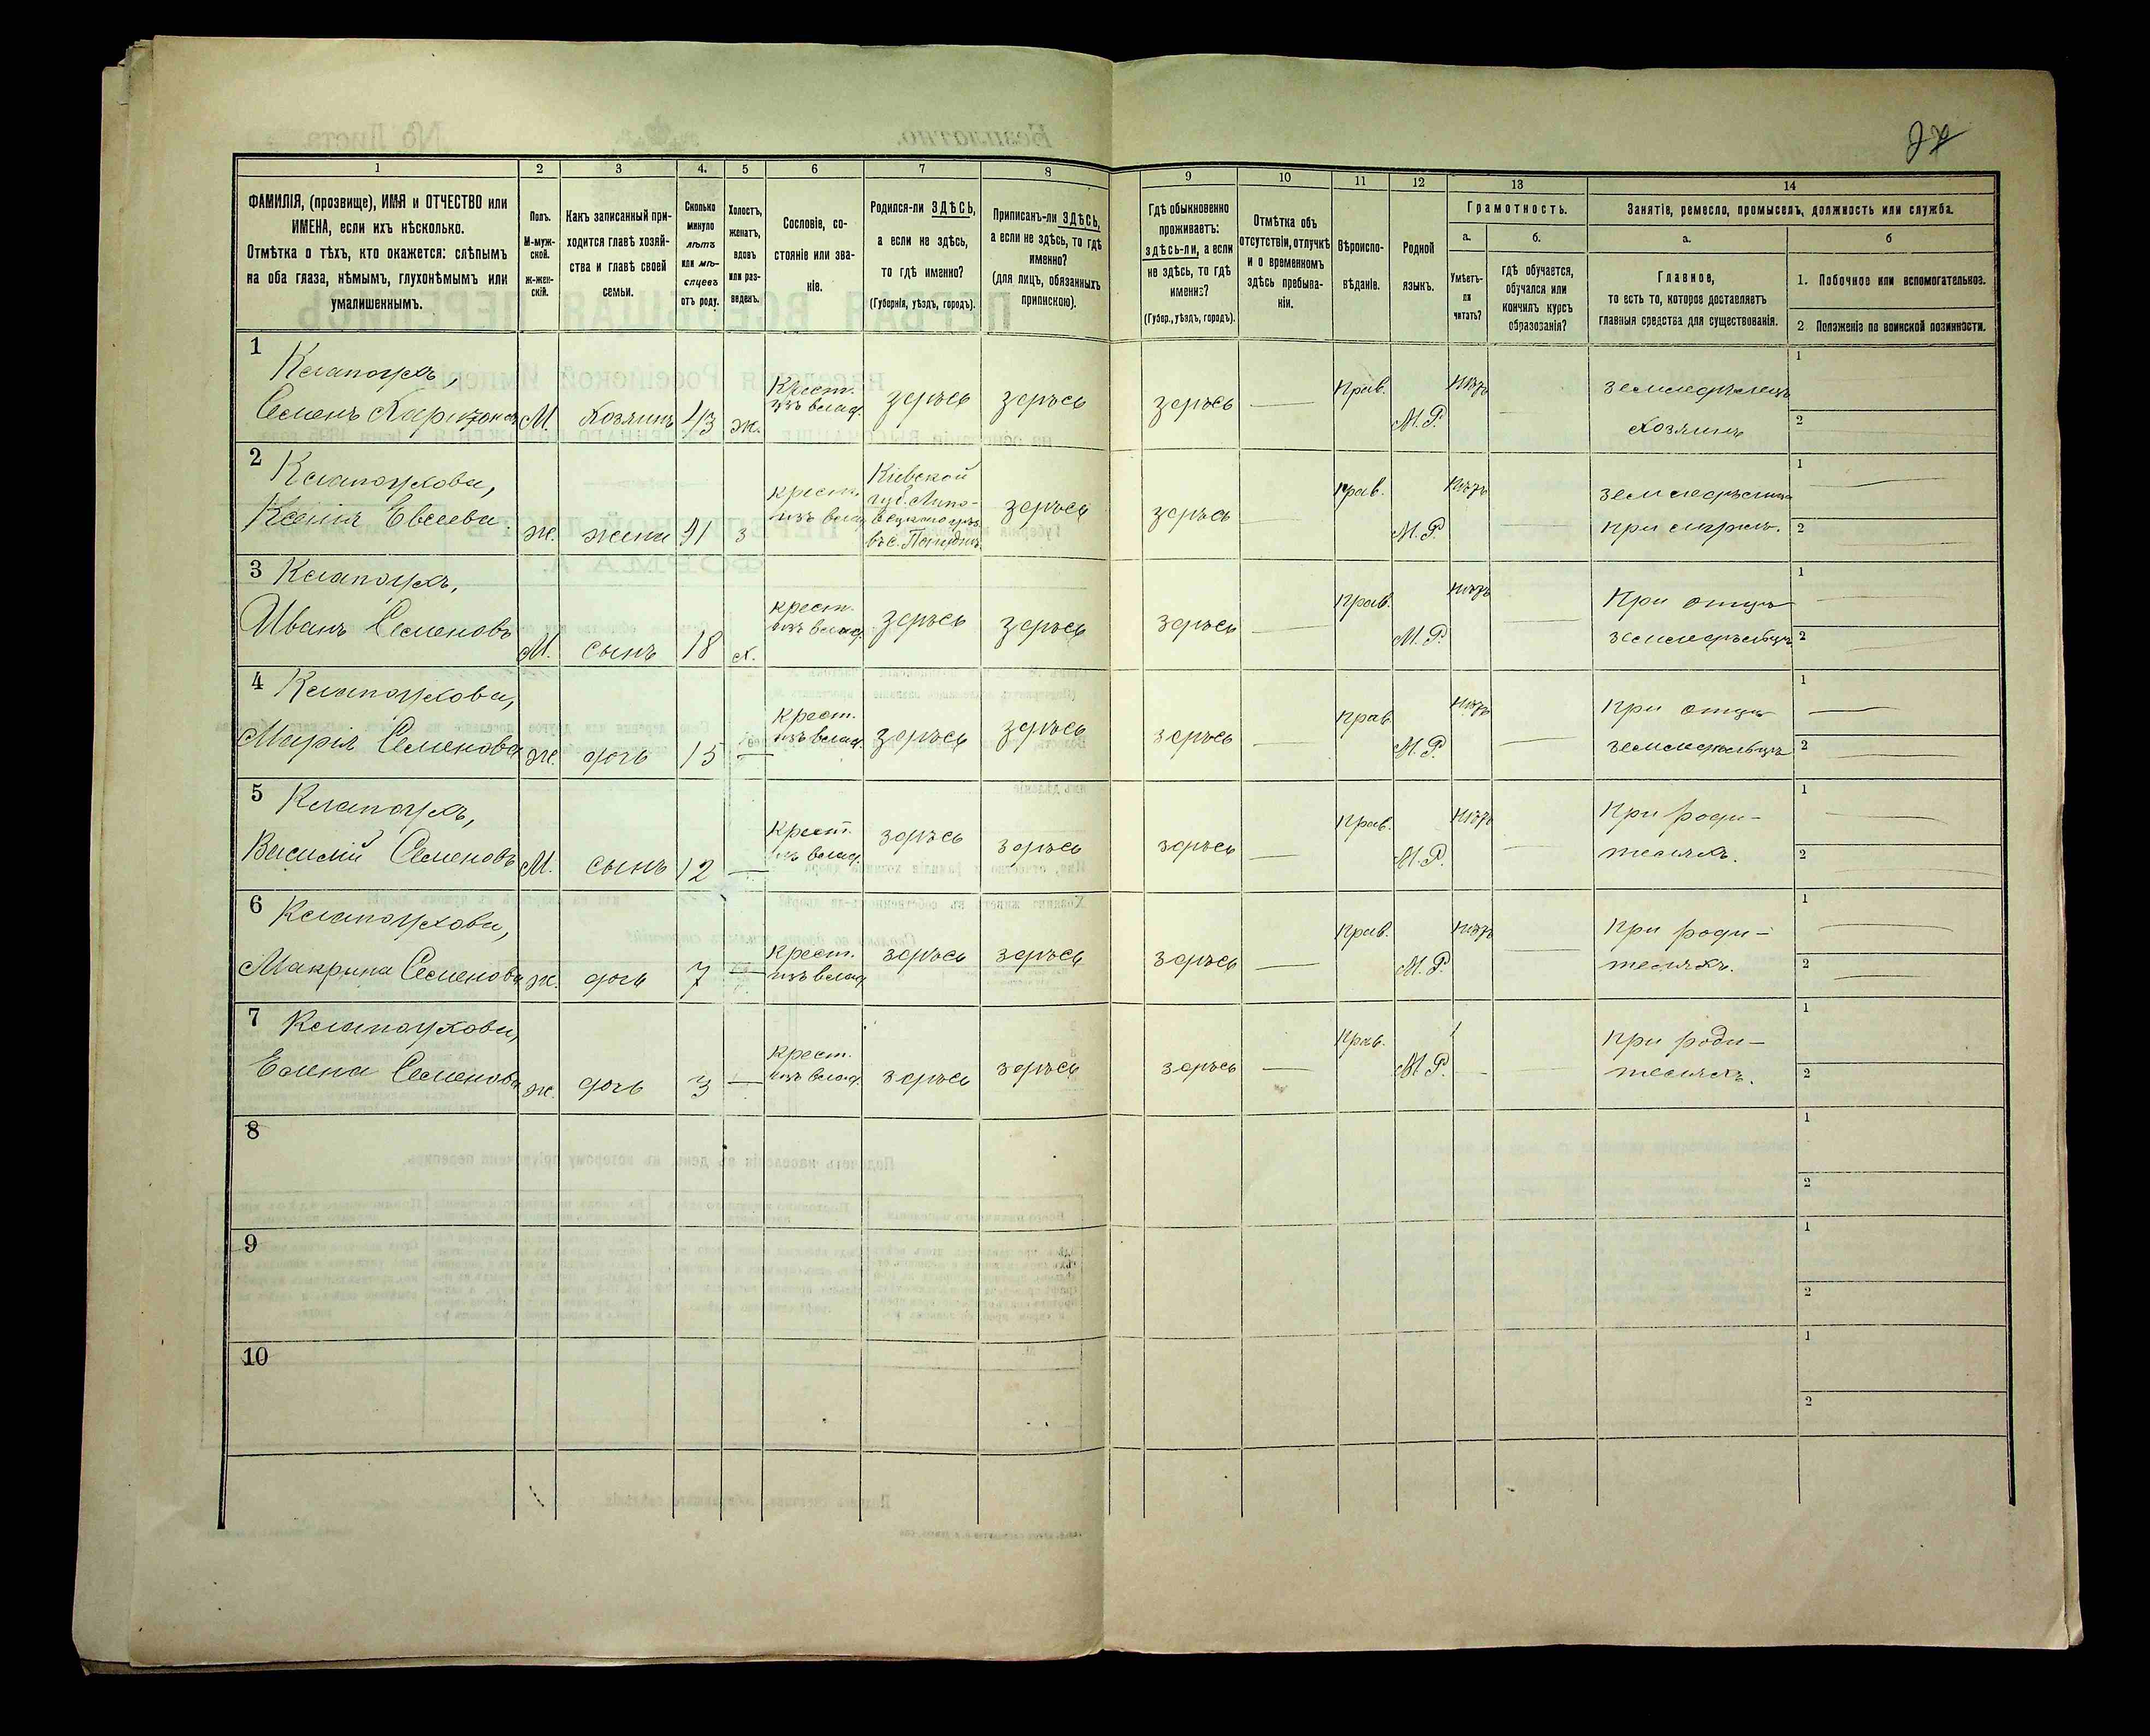 27
1 2 3 4. 5 6 7 8 9 10 11 12 13 14
ФАМИЛІЯ, (прозвище), ИМЯ и ОТЧЕСТВО или
ИМЕНА, если ихъ нѣсколько.
Отмѣтка о тѣхъ, кто окажется: слѣпымъ
на оба глаза, нѣмымъ, глухонѣмымъ или
умалишеннымъ.
Полъ.
М-муж-
ской.
Ж-жен-
скій.
Какъ записанный при-
ходится главѣ хозяй-
ства и главѣ своей
семьи.
Сколько
минуло
лѣтъ
или мѣ-
сяцевъ
отъ роду.
Холостъ,
женатъ,
вдовъ
или раз-
веденъ.
Сословіе, со-
стояніе или зва-
ніе.
Родился-ли ЗДѢСЬ,
а если не здѣсь,
то гдѣ именно?
(Губернія, уѣздъ, городъ).
Приписанъ-ли ЗДѢСЬ,
а если не здѣсь, то гдѣ
именно?
(для лицъ, обязанныхъ
припискою).
Гдѣ обыкновенно
проживаетъ:
здѣсь-ли, а если
не здѣсь, то гдѣ
именно?
(Губер., уѣздъ, городъ).
Отмѣтка объ
отсутствіи, отлучкѣ
и о временномъ
здѣсь пребыва-
ніи.
Вѣроиспо-
вѣданіе.
Родной
языкъ.
Грамотность.
а.
Умѣетъ-
ли
читать?
б.
гдѣ обучается,
обучался или
кончилъ курсъ
образованія?
Занятіе, ремесло, промыселъ, должность или служба.
а.
Главное,
то есть то, которое доставляетъ
главныя средства для существованія.
б
1. Побочное или вспомогательное.
2. Положеніе по воинской повинности.
1 Клапоухъ,
Семенъ М. Хозяинъ 43 ж.
Крест.
изъ влад. здѣсь здѣсь здѣсь — Прав. М.Р. нѣтъ — земледѣлецъ
хозяинъ
1
2
2 Клапоухова,
Ксенія Евсеева ж. жена 41 з
крест.
изъ влад.
Кіевской
губ. Липо-
вецкаго уѣз.
здѣсь здѣсь — прав. М.Р. нѣтъ
при мужѣ.
1
2
3 Клапоухъ,
Иванъ Семеновъ М. сынъ 18 х.
крест.
изъ влад. здѣсь здѣсь здѣсь — прав. М.Р. нѣтъ — При отцѣ
земледѣльцѣ
1
2
4 Клапоухова,
Марія Семенова ж. дочь 15 —
Крест.
изъ влад. здѣсь здѣсь здѣсь — прав. М.Р. нѣтъ — При отцѣ
земледѣльцѣ
1
2
5 Клапоухъ,
Василій Семеновъ М. сынъ 12 —
Крест.
изъ влад. здѣсь здѣсь здѣсь — Прав. М.Р. нѣтъ — При роди-
теляхъ.
1
2
6 Клапоухова,
Макрина Семенова ж. дочь 7 —
Крест.
изъ влад. здѣсь здѣсь здѣсь — Прав. М.Р. нѣтъ — При роди-
теляхъ.
1
2
7 Клапоухова,
Елена Семенова ж. дочь 3 —
крест.
изъ влад. здѣсь здѣсь здѣсь — Прав. М.Р. — — при роди-
теляхъ.
1
2
8
1
2
9
1
2
10
1
2